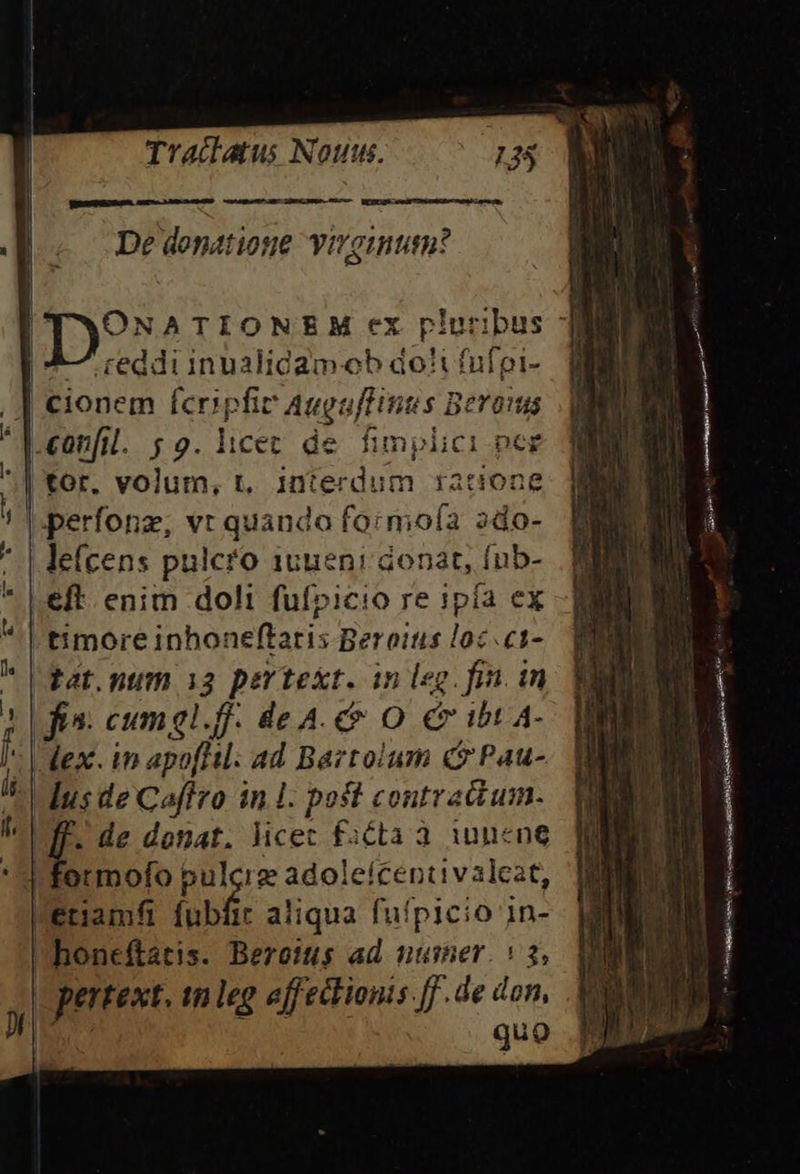 Tractatus Nouus. 135
De donatione virginum?
DONATIONEM ex pluribus
reddi inualidam ob doli ſuſpi-
cionem ſcripſit Auguſtinus Beroius
conſil. 59. licet de ſimplici per
tor. volum, 1. interdum ratione
perſonæ, vt quando formoſa ado-
leſcens pulcro iuueni donat, ſub-
eſt enim doli ſuſpicio re ipſa ex
timore inhoneſtatis Beroius loc. ci-
tat. num 13 per text. in leg. fin. in
fin. cum gl. ff. de A. & O & ibi A-
lex. in apoſtil. ad Bartolum & Pau-
lus de Caſtro in l. poſt contractum.
ff. de donat. licet facta à iuuene
formoſo pulcræ adoleſcenti valeat,
etiamſi ſubſit aliqua ſuſpicio in-
honeſtatis. Beroius ad numer. 13,
per text. in leg affectionis ff. de don,
quo